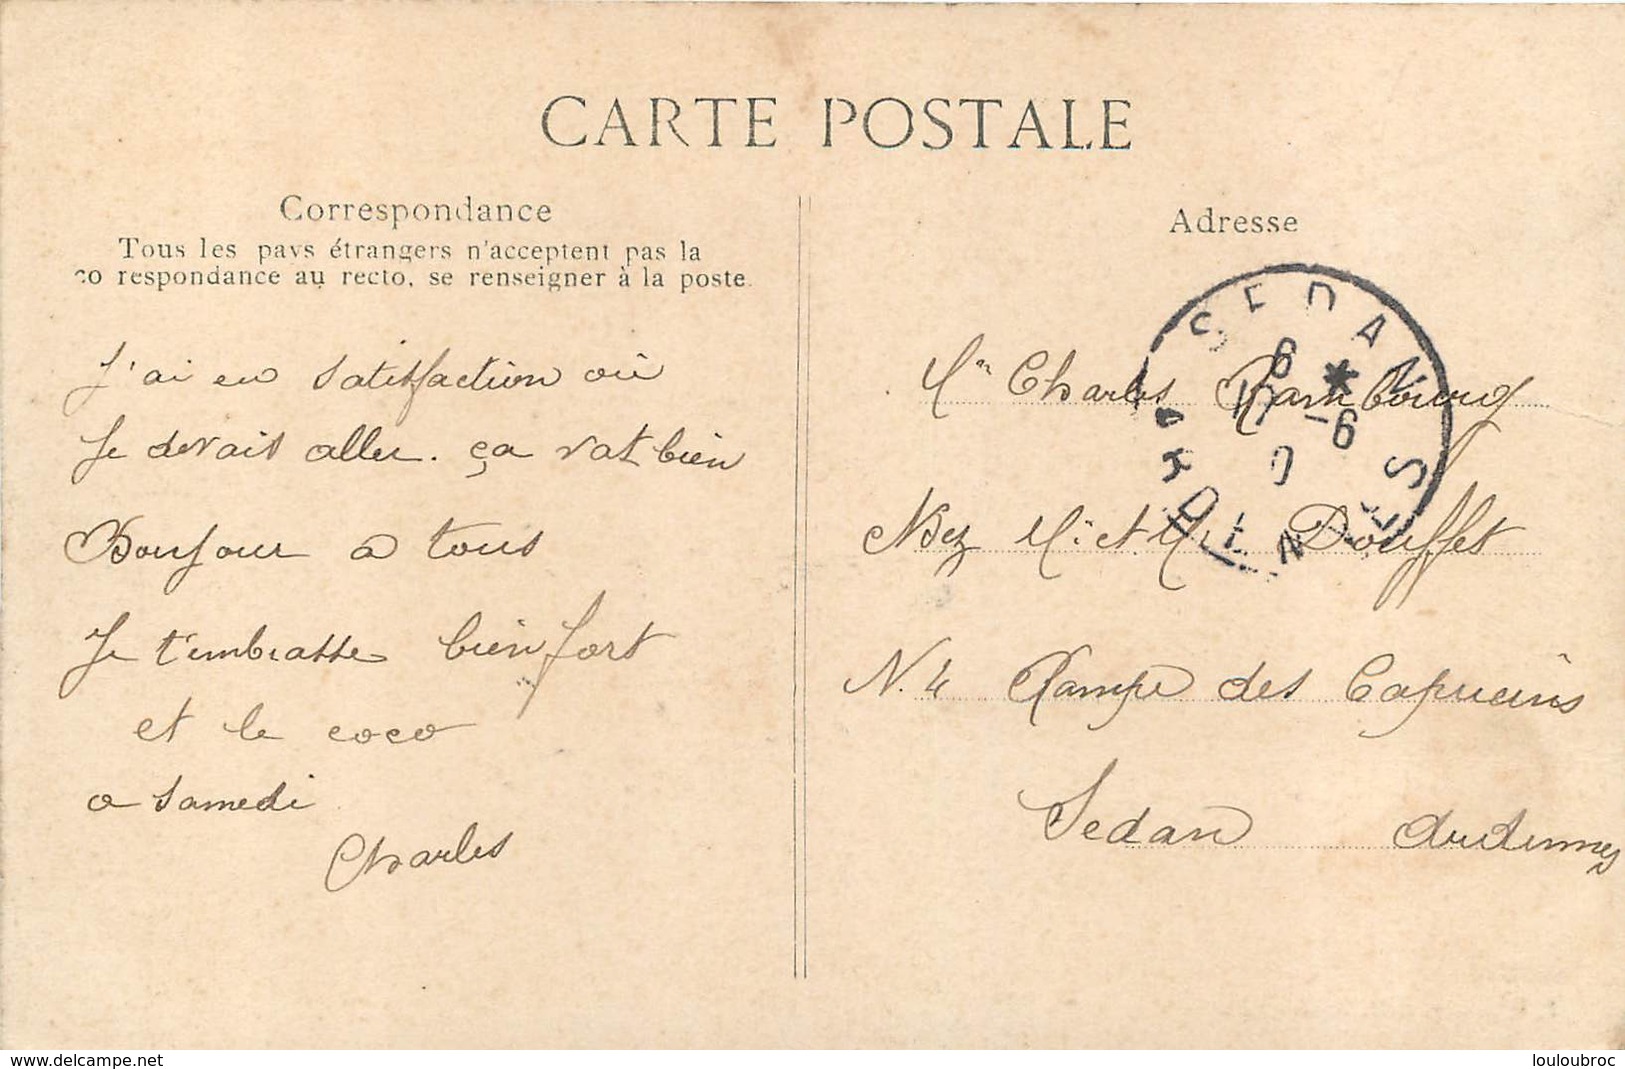 CARTE POSTALE
Correspondance
Tous les pays étrangers n'acceptent pas la
co respondance au recto, se renseigner à la poste.
J'ai eu satisfaction où
Je devais aller. ça vat bien
Bonjour a tous
Je t'embrasse bien fort
et le coco
a samedi
Charles
Adresse
SEDAN
ARDENNES
Charles Rambourg
Douffet
N. 4 Rampe des Capucins
Sedan Ardennes
delcampe.net
louloubroc